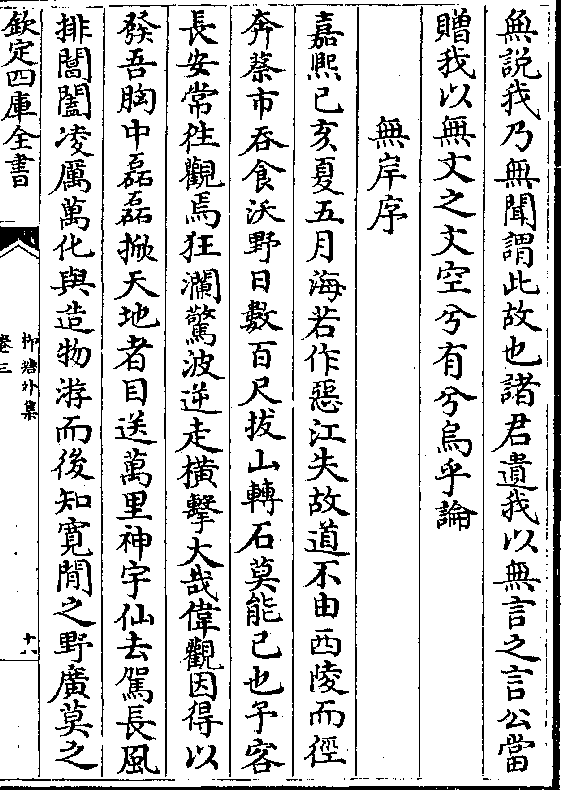 無説我乃無聞謂此故也諸君遺我以無言之言公當
贈我以無文之文空兮有兮烏乎論
無岸序
嘉熙己亥夏五月海若作惡江失故道不由西陵而徑
奔蔡市吞食沃野日數百尺拔山轉石莫能已也予客
長安常徃觀焉狂瀾驚波逆走横擊大哉偉觀因得以
發吾胸中磊磊掀天地者目送萬里神宇仙去駕長風
排閶闔凌厲萬化與造物游而後知寛閒之野廣莫之
欽定四庫全書
柳塘外集
卷三
十六